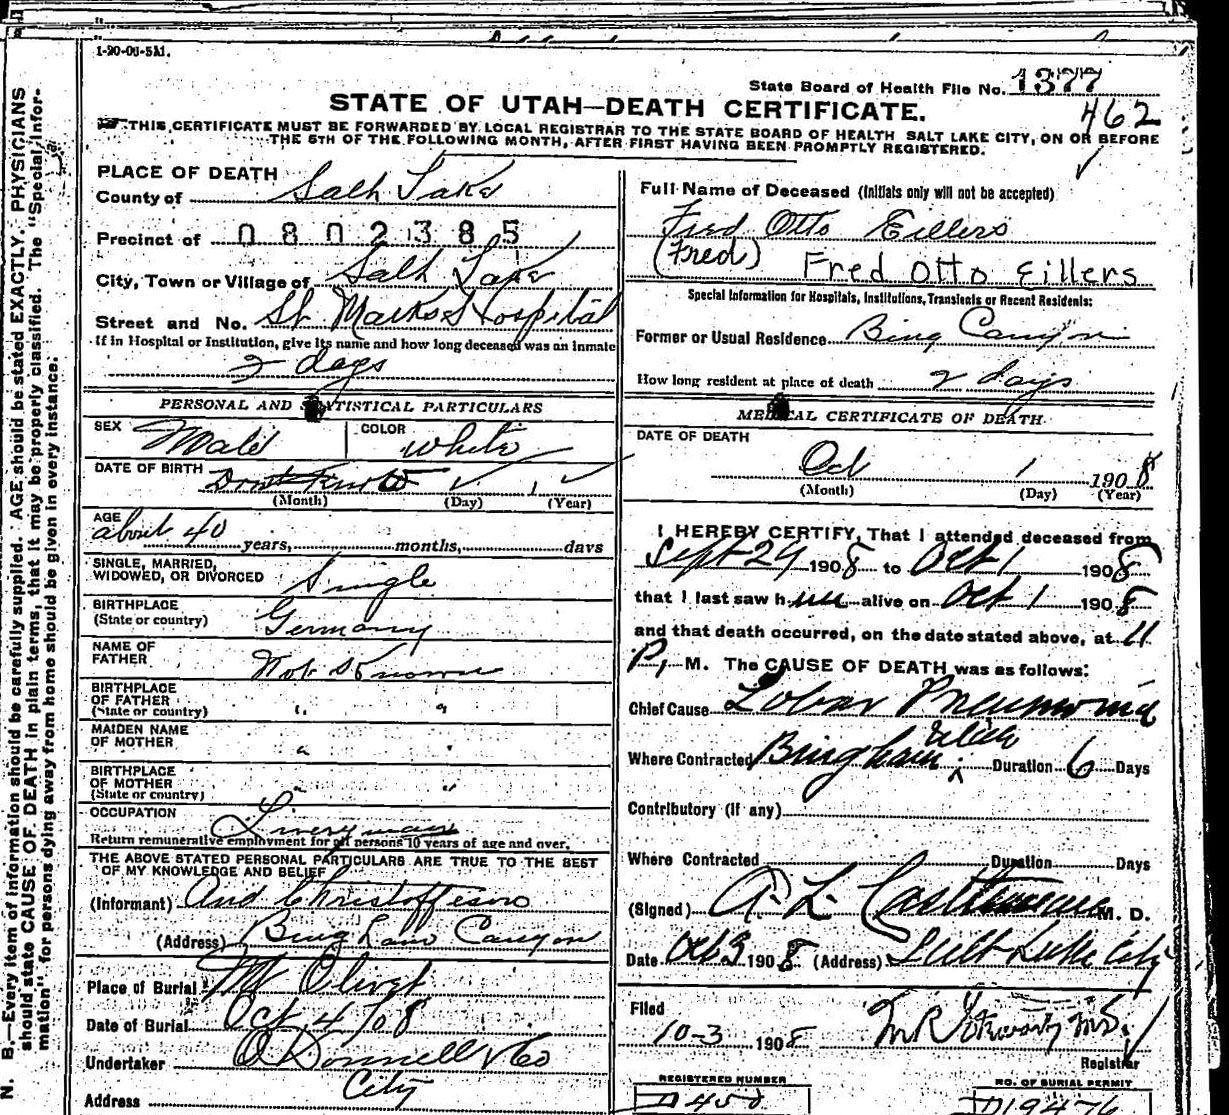 1-20-06-5M.
State Board of Health File No. 1377
STATE OF UTAH—DEATH CERTIFICATE.
462
THIS CERTIFICATE MUST BE FORWARDED BY LOCAL REGISTRAR TO THE STATE BOARD OF HEALTH SALT LAKE CITY, ON OR BEFORE
THE 5TH OF THE FOLLOWING MONTH, AFTER FIRST HAVING BEEN PROMPTLY REGISTERED.
N. B.—Every item of information should be carefully supplied. AGE should be stated EXACTLY. PHYSICIANS
should state CAUSE OF DEATH in plain terms, that it may be properly classified. The "Special Infor-
mation" for persons dying away from home should be given in every instance.
PLACE OF DEATH
County of Salt Lake
Precinct of 0802385
City, Town or Village of Salt Lake
Street and No. St Marks Hospital
If in Hospital or Institution, give its name and how long deceased was an inmate
2 days
PERSONAL AND STATISTICAL PARTICULARS
SEX Male COLOR White
DATE OF BIRTH Dont Know 1
(Month) (Day) (Year)
AGE
about 40 years, months, days
SINGLE, MARRIED,
WIDOWED, OR DIVORCED Single
BIRTHPLACE
(State or country) Germany
NAME OF
FATHER Not Known
BIRTHPLACE
OF FATHER
(State or country) " "
MAIDEN NAME
OF MOTHER " "
BIRTHPLACE
OF MOTHER
(State or country) " "
OCCUPATION Liveryman
Return remunerative employment for all persons 10 years of age and over.
THE ABOVE STATED PERSONAL PARTICULARS ARE TRUE TO THE BEST
OF MY KNOWLEDGE AND BELIEF
(Informant) And Christoffeson
(Address) Bingham Canyon
Place of Burial Mt Olivet
Date of Burial Oct 4/08
Undertaker O'Donnell & Co
Address City
Full Name of Deceased (Initials only will not be accepted)
Fred Otto Eillers
(Fred) Fred Otto Eillers
Special Information for Hospitals, Institutions, Transients or Recent Residents:
Former or Usual Residence Bing Canyon
How long resident at place of death 2 days
MEDICAL CERTIFICATE OF DEATH
DATE OF DEATH
Oct 1 1908
(Month) (Day) (Year)
I HEREBY CERTIFY, That I attended deceased from
Sept 29 1908 to Oct 1 1908
that I last saw him alive on Oct 1 1908
and that death occurred, on the date stated above, at 11
P, M. The CAUSE OF DEATH was as follows:
Chief Cause Lobar Pneumonia
Where Contracted Bingham Utah Duration 6 Days
Contributory (if any)
Where Contracted Duration Days
(Signed) A. L. M. D.
Date Oct 3 1908 (Address) Salt Lake City
Filed
10-3 1908 M.D.
Registrar
REGISTERED NUMBER
NO. OF BURIAL PERMIT
D 19476